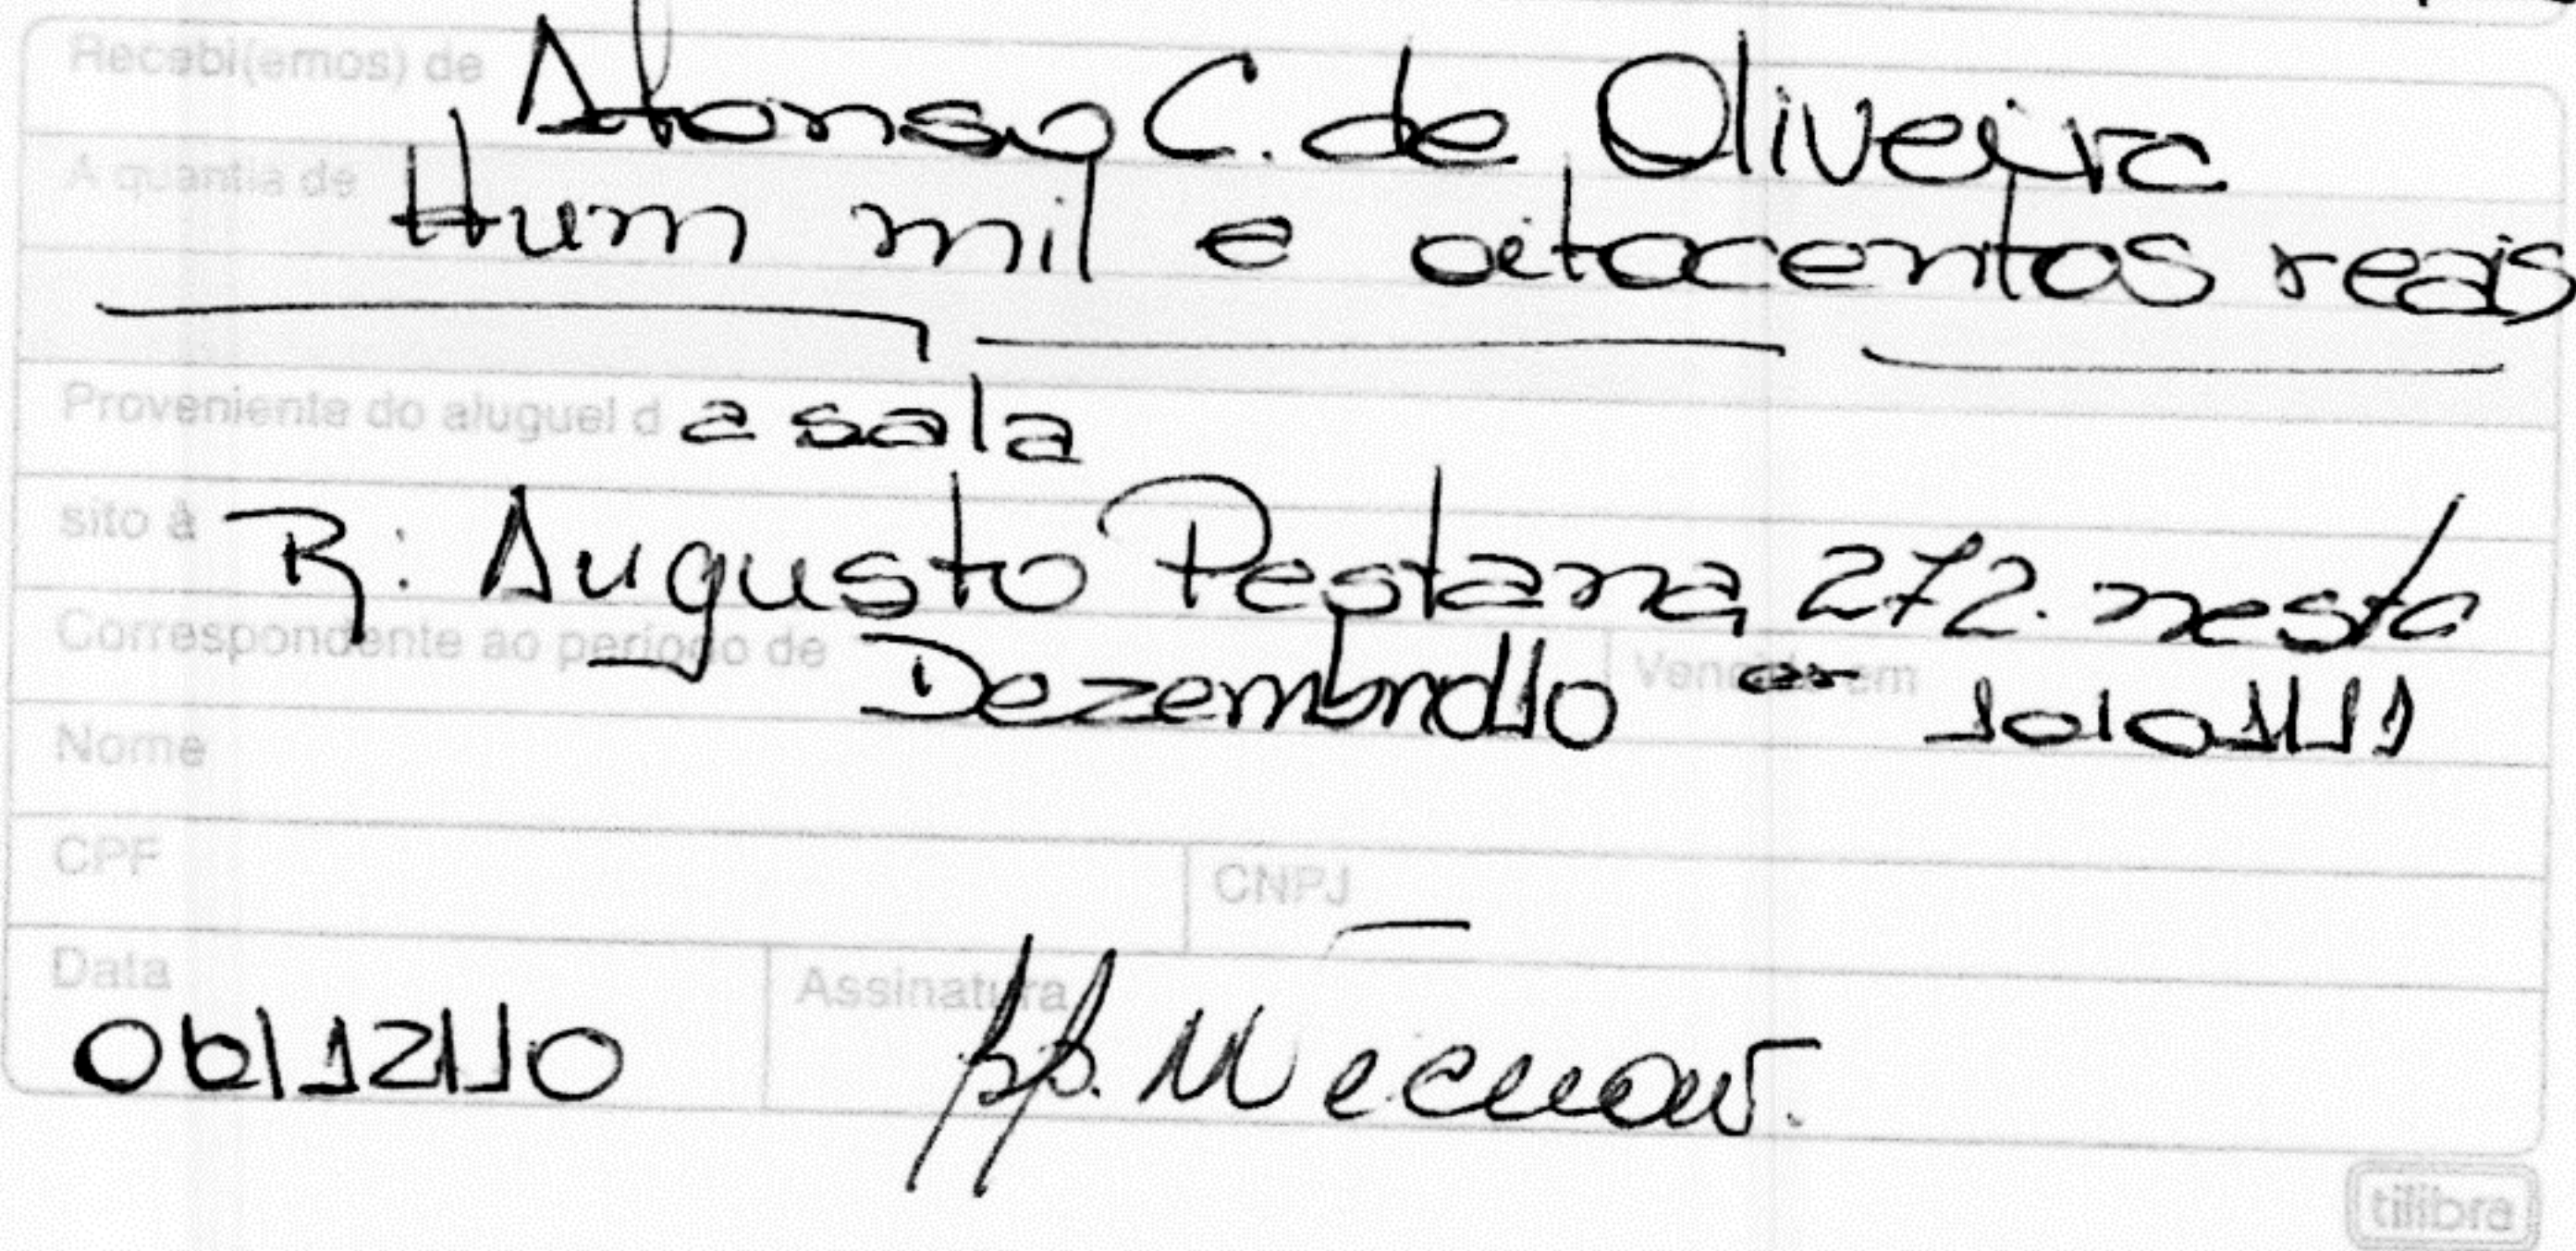 Recebi(emos) de Afonso C. de Oliveira
A quantia de Hum mil e oitocentos reais
Proveniente do aluguel d a sala
sito à R: Augusto Pestana, 272. nesta
Correspondente ao período de Dezembro/10 Vencido em 10/01/11
Nome
CPF CNPJ
Data Assinatura
06/12/10 pp.
tilibra